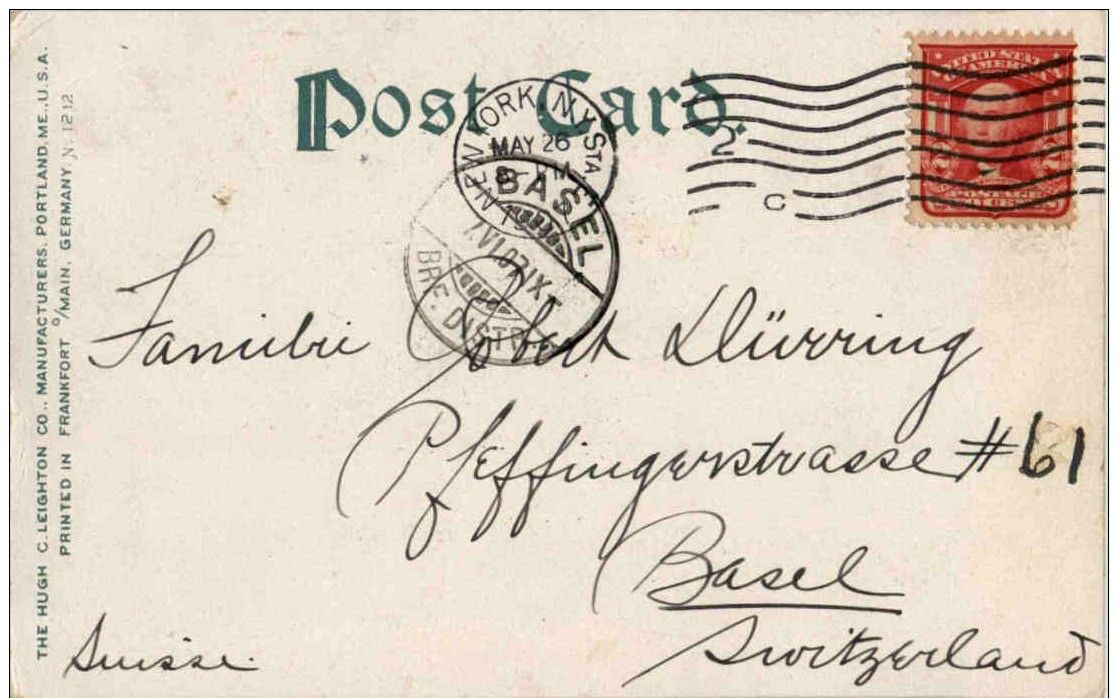 Post Card.
NEW YORK, N.Y. STA
MAY 26
BASEL
7.VI.07.IX
BRF. DISTR.
2
C
UNITED STATES
OF AMERICA
Familie Robert Dürring
Pfeffingerstrasse #61
Basel
Switzerland
Suisse.
THE HUGH C. LEIGHTON CO., MANUFACTURERS, PORTLAND, ME., U.S.A.
PRINTED IN FRANKFORT O/MAIN, GERMANY, N. 1212